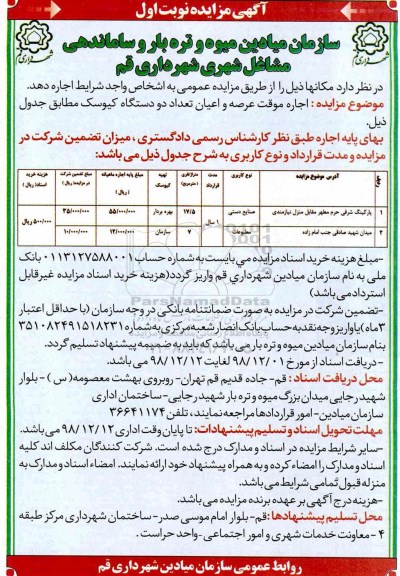 آگهی مزایده نوبت اول
سازمان میادین میوه و تره بار و ساماندهی
مشاغل شهری شهرداری قم
در نظر دارد مکانها ذیل را از طریق مزایده عمومی به اشخاص واجد شرایط اجاره دهد.
موضوع مزایده : اجاره موقت عرصه و اعیان تعداد دو دستگاه کیوسک مطابق جدول
ذیل.
بهای پایه اجاره طبق نظر کارشناس رسمی دادگستری ، میزان تضمین شرکت در
مزایده و مدت قرارداد و نوع کاربری به شرح جدول ذیل می باشد:
ردیف آدرس موضوع مزایده نوع کاربری مدت قرارداد متراژ (مترمربع) تهیه کیوسک مبلغ پایه اجاره ماهیانه (ریال) مبلغ تضمین شرکت در مزایده (ریال) هزینه خرید اسناد (ریال)
۱ پارکینگ شرقی حرم مطهر مقابل منزل نیازمندی صنایع دستی ۱ سال ۱۷/۵ بهره بردار ۵۵/۰۰۰/۰۰۰ ۳۵/۰۰۰/۰۰۰ ۵۰۰/۰۰۰ ریال
۲ میدان شهید صادقی جنب امام زاده مطبوعات ۷ سازمان ۱۲/۰۰۰/۰۰۰ ۱۰/۰۰۰/۰۰۰
-مبلغ هزینه خرید اسناد مزایده می بایست به شماره حساب ۰۱۱۳۱۲۷۵۸۸۰۰۱ بانک
ملی به نام سازمان میادین شهرداری قم واریز گردد(هزینه خرید اسناد مزایده غیرقابل
استرداد می باشد)
-تضمین شرکت در مزایده به صورت ضمانتنامه بانکی در وجه سازمان (با حداقل اعتبار
۳ماه)یا واریز وجه نقد به حساب بانک انصار شعبه مرکزی به شماره ۳۵۱۰۸۲۴۹۱۵۱۸۲۳۱
بنام سازمان میادین میوه و تره بار می باشد که باید به ضمیمه پیشنهاد تسلیم گردد.
- دریافت اسناد از مورخ ۹۸/۱۲/۰۱ لغایت ۹۸/۱۲/۱۲ می باشد.
محل دریافت اسناد : قم- جاده قدیم قم تهران- روبروی بهشت معصومه( س ) - بلوار
شهید رجایی میدان بزرگ میوه و تره بار شهید رجایی- ساختمان اداری
سازمان میادین- امور قراردادها مراجعه نمایند، تلفن ۳۶۶۴۱۱۷۴
مهلت تحویل اسناد و تسلیم پیشنهادات: تا پایان وقت اداری ۹۸/۱۲/۱۲ می باشد.
-سایر شرایط مزایده در اسناد و مدارک درج شده است. شرکت کنندگان مکلف اند کلیه
اسناد و مدارک را امضاء کرده و به همراه پیشنهاد خود ارائه نمایند. امضاء اسناد و مدارک به
منزله قبول تمامی شرایط می باشد.
-هزینه درج آگهی بر عهده برنده مزایده می باشد.
محل تسلیم پیشنهادها :قم- بلوار امام موسی صدر- ساختمان شهرداری مرکز طبقه
۴ - معاونت خدمات شهری و امور اجتماعی -واحد حراست .
روابط عمومی سازمان میادین شهرداری قم